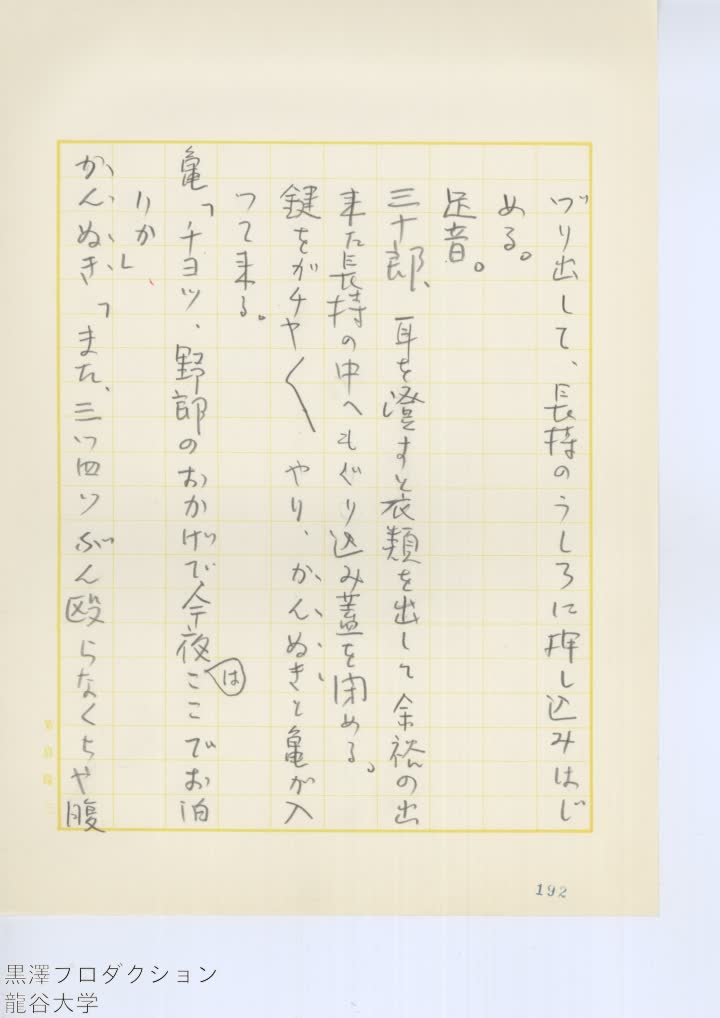 づり出して、長持のうしろに押し込みはじ
める。
足音。
三十郎、耳を澄すと衣類を出して余裕の出
来た長持の中へもぐり込み蓋を閉める。
鍵をガチヤ〱やり、かんぬきと亀が入
つて来る。
亀「チヨツ、野郎のおかげで今夜はここでお泊
りか」
かんぬき「また、三ツ四ツぶん殴らなくちや腹
192
黒澤プロダクション
龍谷大学